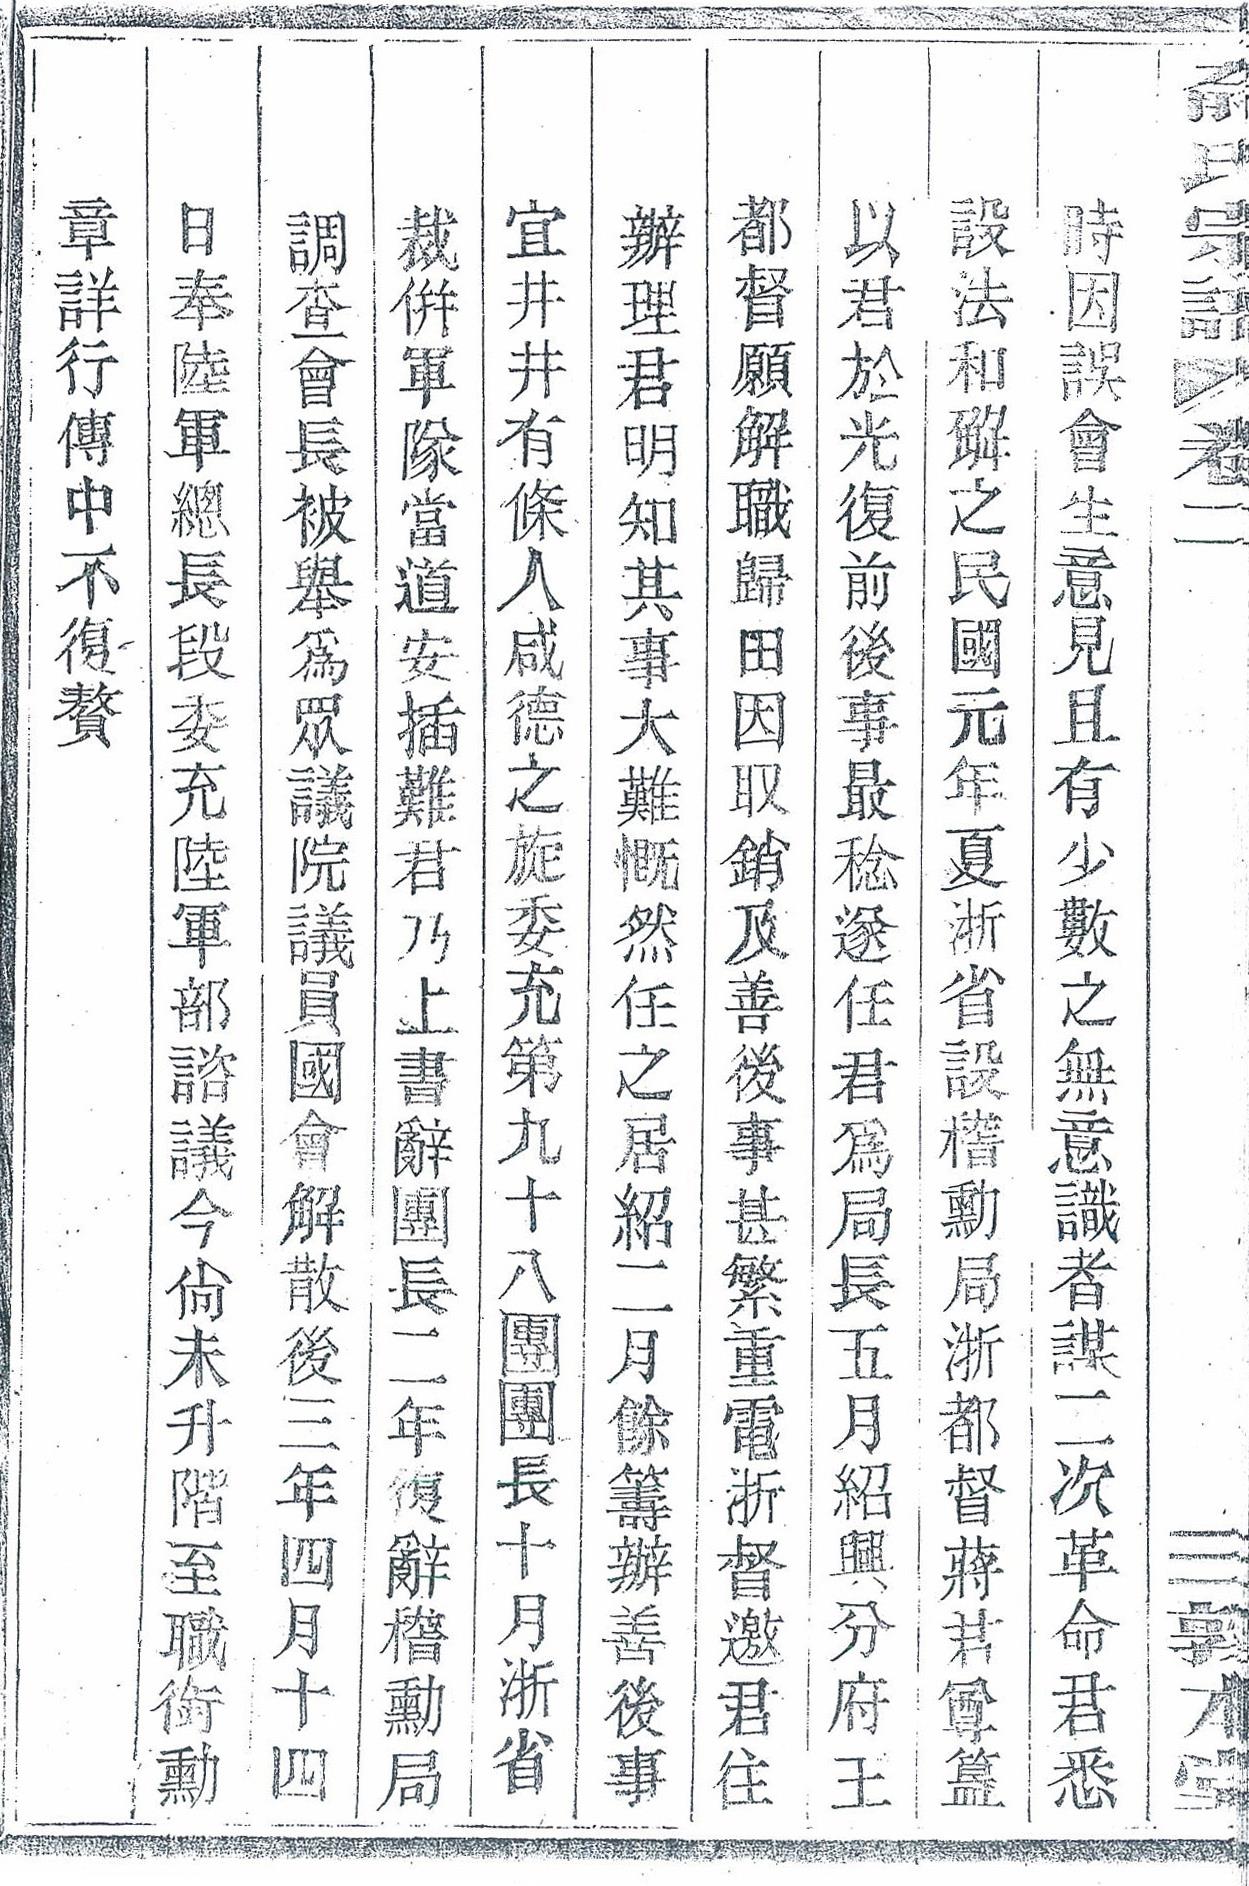 俞氏宗譜 卷二 三 敦本堂
時因誤會生意見且有少數之無意識者謀二次革命君悉
設法和解之民國元年夏浙省設稽勳局浙都督蔣君尊簋
以君於光復前後事最稔遂任君爲局長五月紹興分府王
都督願解職歸田因取銷及善後事甚繁重電浙督邀君往
辦理君明知其事大難慨然任之居紹二月餘籌辦善後事
宜井井有條人咸德之旋委充第九十八團團長十月浙省
裁倂軍隊當道安插難君乃上書辭團長二年復辭稽勳局
調查會長被舉爲眾議院議員國會解散後三年四月十四
日奉陸軍總長段委充陸軍部諮議今尙未升階至職銜勳
章詳行傳中不復贅